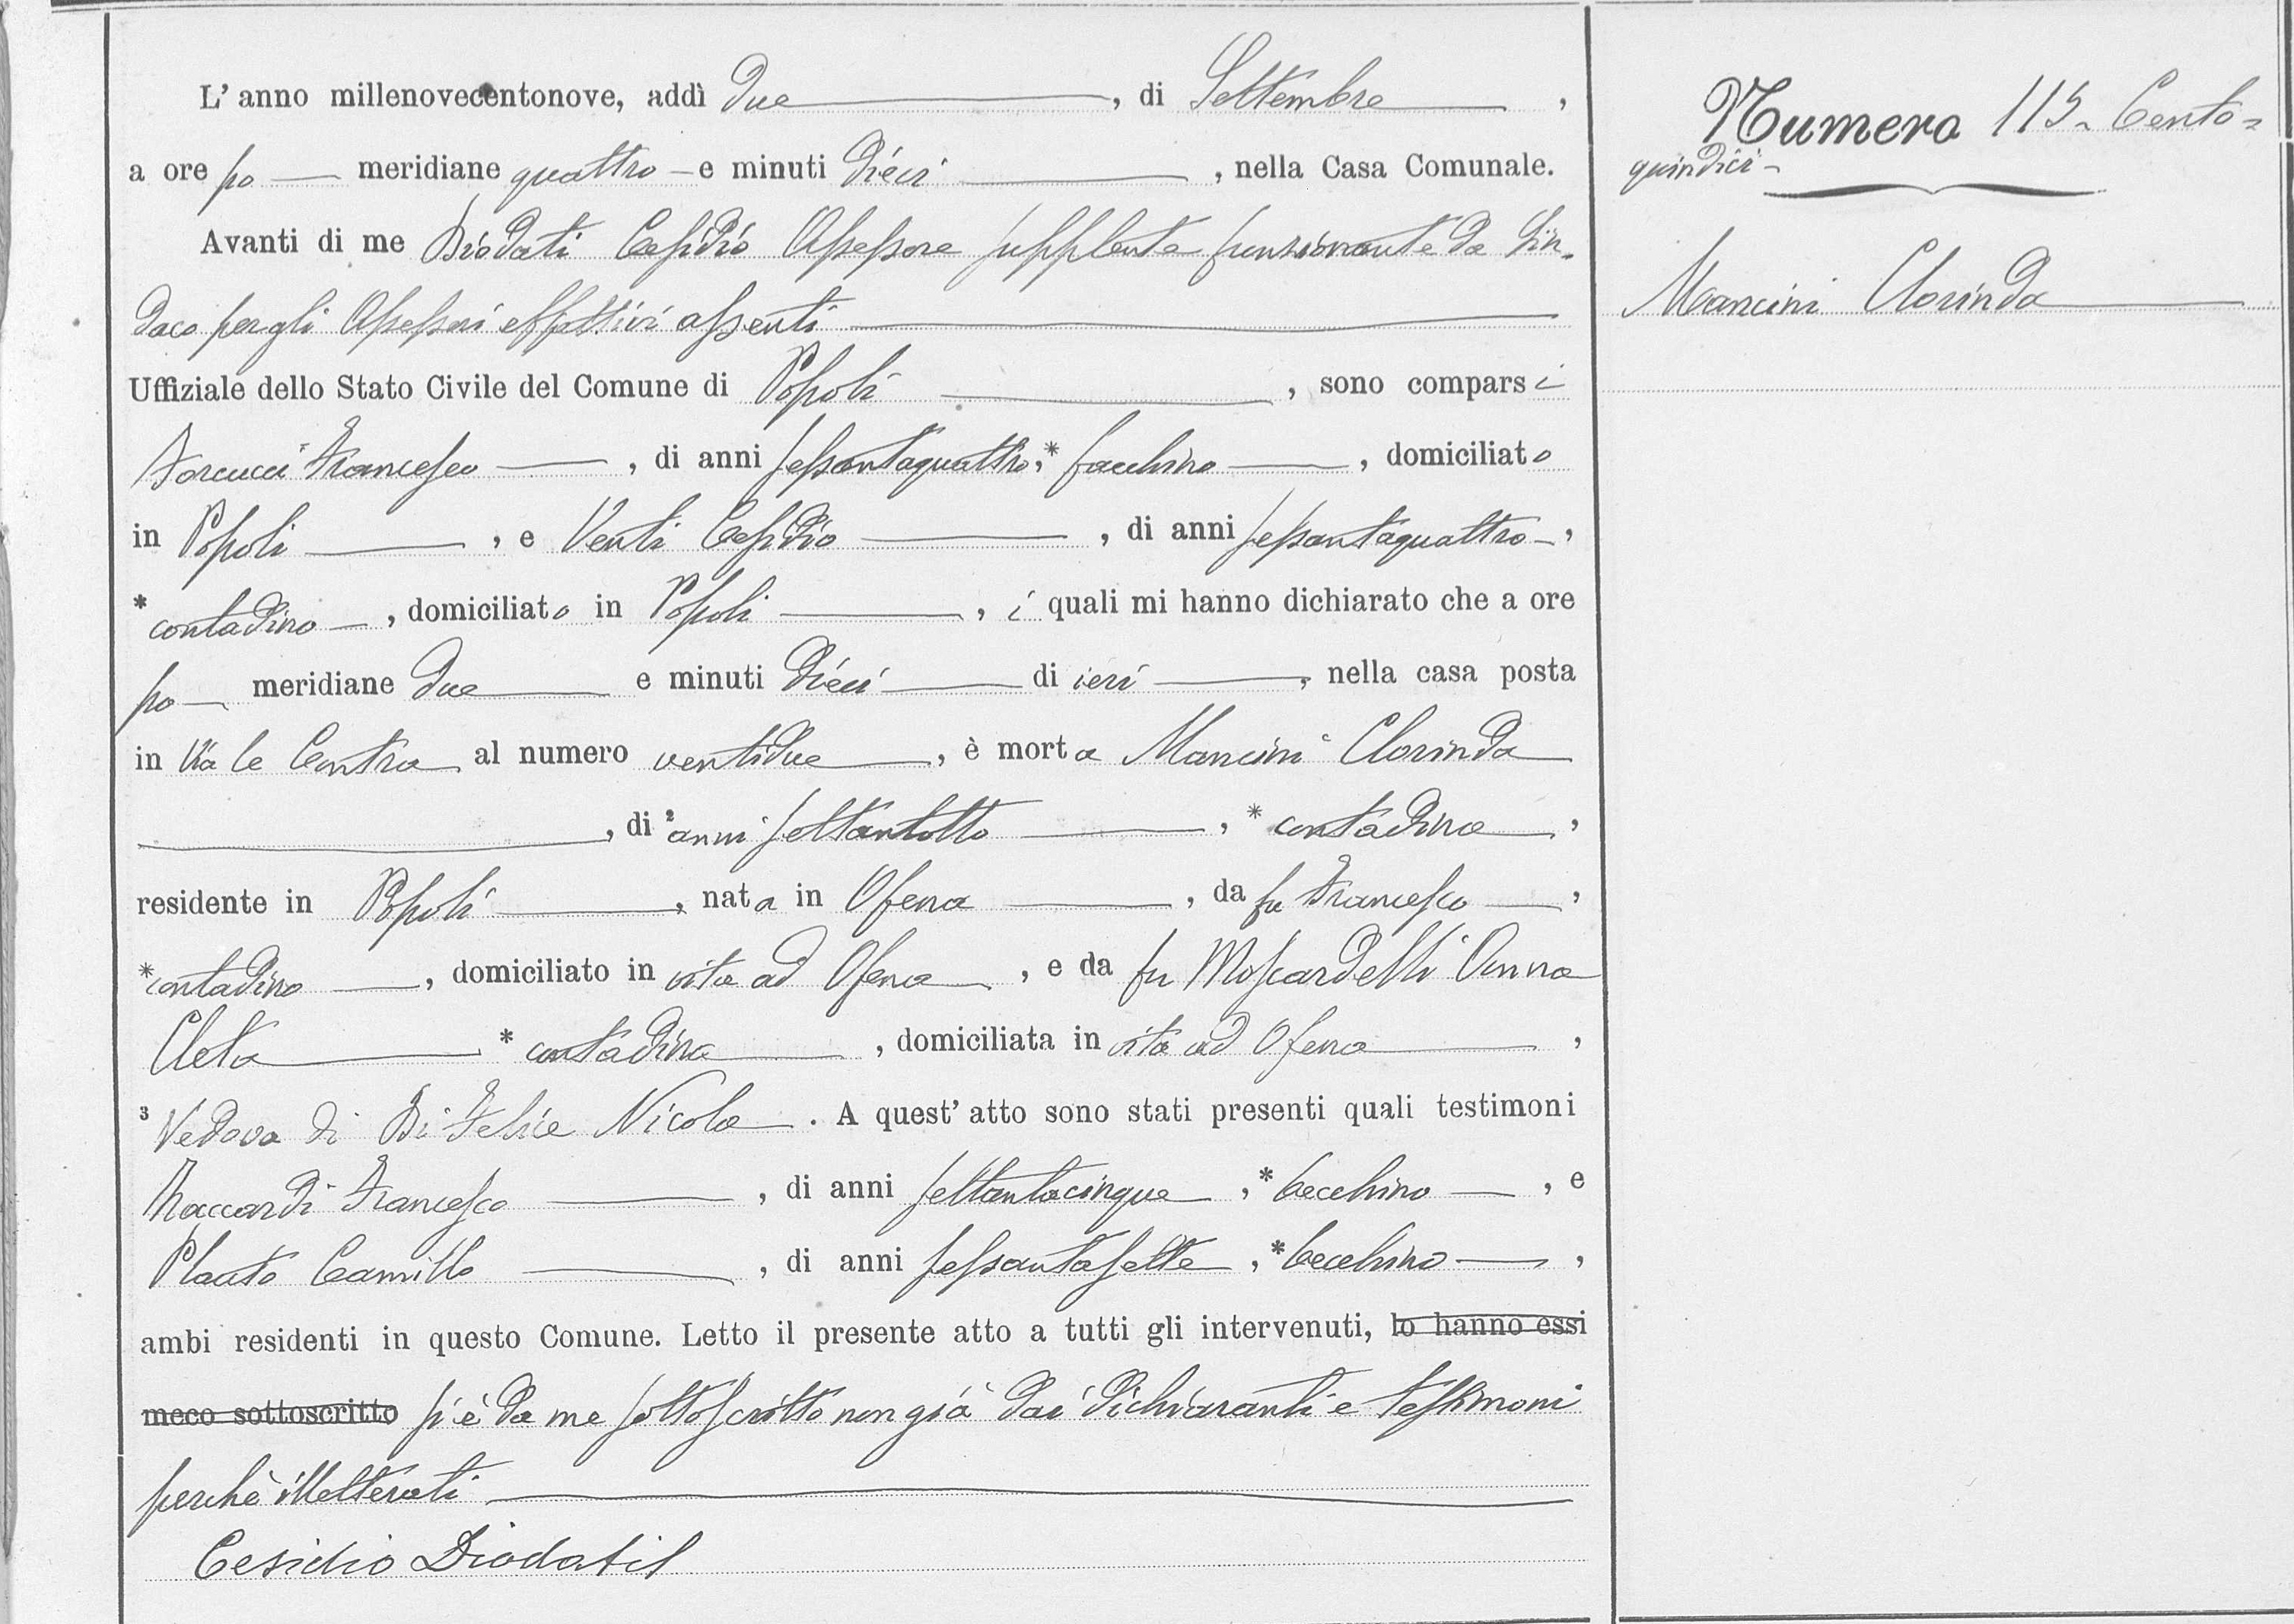 L'anno millenovecentonove, addì due, di Settembre,
a ore po meridiane quattro e minuti dieci, nella Casa Comunale.
Avanti di me Diodati Cesidio Assessore supplente funzionante da Sin-
daco per gli Assessori effettivi assenti
Uffiziale dello Stato Civile del Comune di Popoli, sono comparsi
Francesco, di anni sessantaquattro, * facchino, domiciliato
in Popoli, e Venti Cesidio, di anni sessantaquattro,
* contadino, domiciliato in Popoli, i quali mi hanno dichiarato che a ore
po meridiane due e minuti dieci di ieri, nella casa posta
in Via le Contra al numero ventidue, è morta Mancini Clorinda
, di ² anni settantotto, * contadina,
residente in Popoli, nata in Ofena, da fu Francesco,
* contadino, domiciliato in vita ad Ofena, e da fu Moscardelli Anna
Cleta * contadina, domiciliata in vita ad Ofena,
³ Vedova di Di Felice Nicola. A quest'atto sono stati presenti quali testimoni
Naccardi Francesco, di anni settantacinque, * becchino, e
Plauto Camillo, di anni sessantasette, * becchino,
ambi residenti in questo Comune. Letto il presente atto a tutti gli intervenuti, lo hanno essi
meco sottoscritto si è da me sottoscritto non già dai dichiaranti e testimoni
perchè illetterati
Cesidio Diodati
Numero 115 Cento=
quindici
Mancini Clorinda